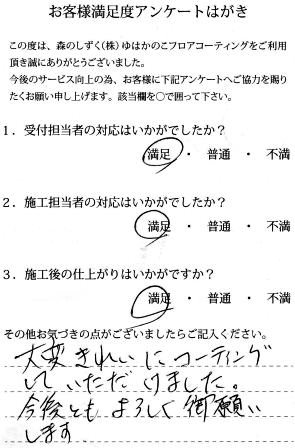 お客様満足度アンケートはがき
この度は、森のしずく(株)ゆはかのこフロアコーティングをご利用
頂き誠にありがとうございました。
今後のサービス向上の為、お客様に下記アンケートへご協力を賜り
たくお願い申し上げます。該当欄を○で囲って下さい。
1．受付担当者の対応はいかがでしたか？
満足 ・ 普通 ・ 不満
2．施工担当者の対応はいかがでしたか？
満足 ・ 普通 ・ 不満
3．施工後の仕上がりはいかがですか？
満足 ・ 普通 ・ 不満
その他お気づきの点がございましたらご記入ください。
大変きれいにコーティング
していただけました。
今後ともよろしく御願い
します